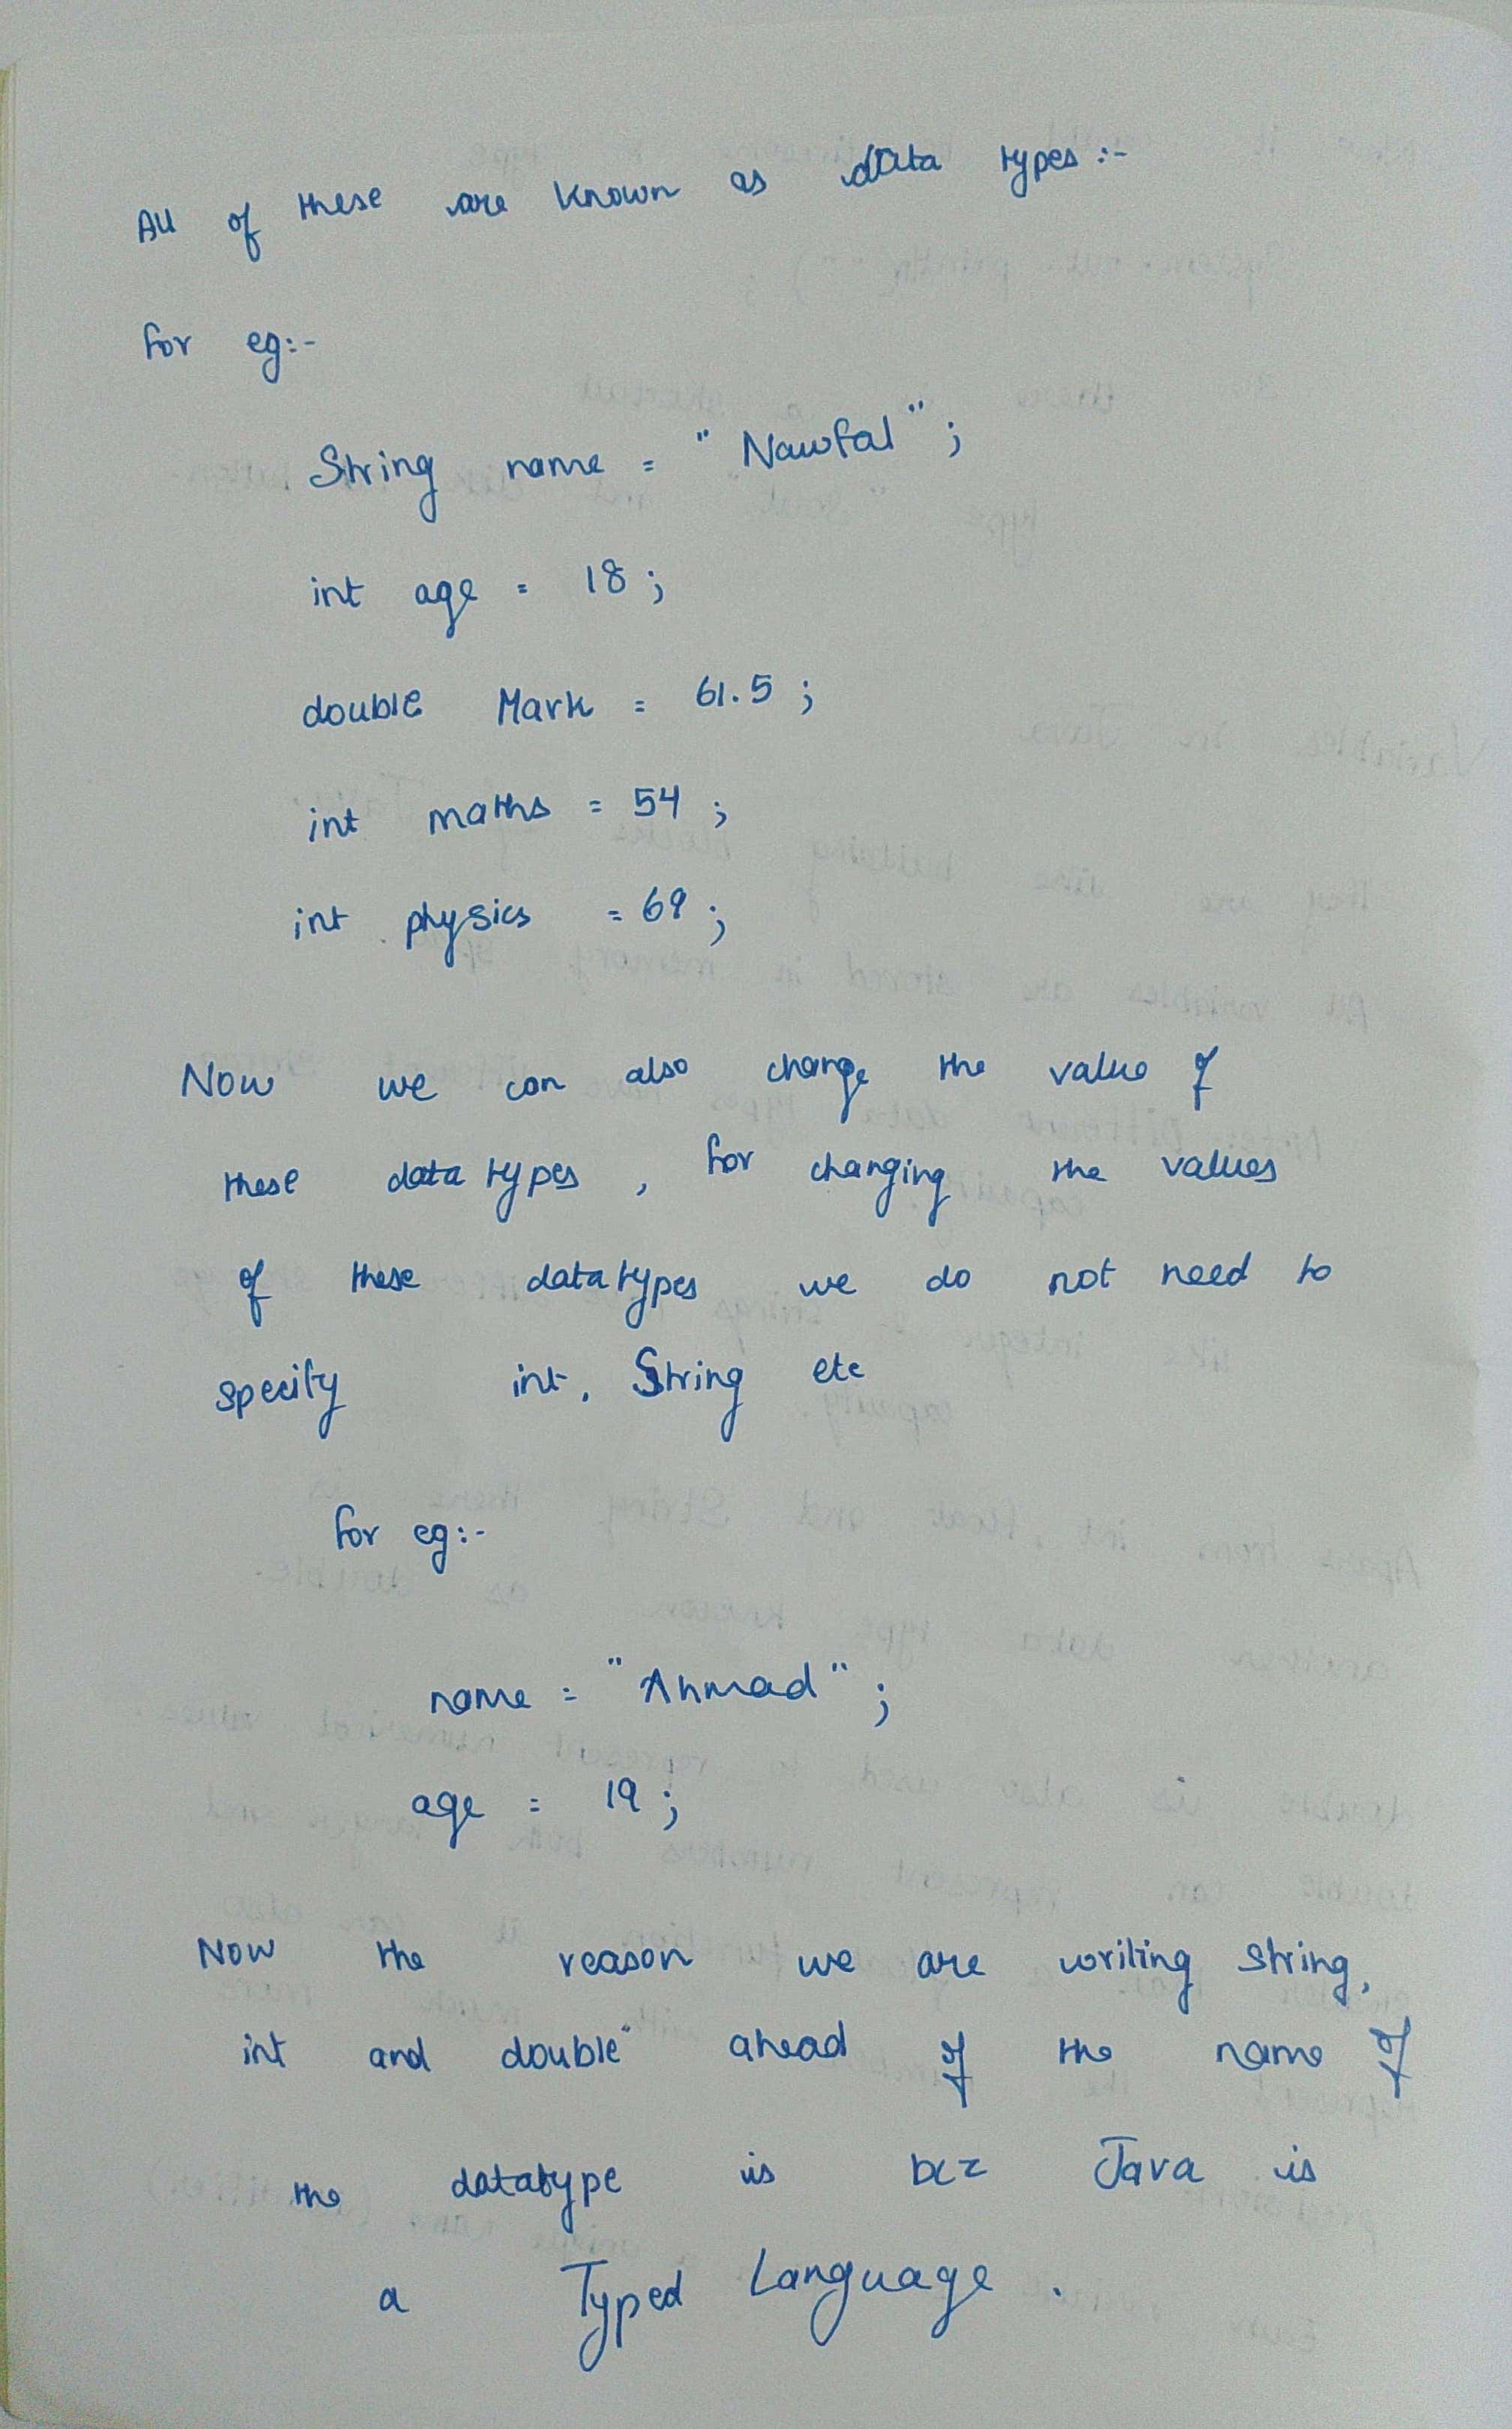 All of these are known as data types :-
for eg:-
String name = "Nawfal" ;
int age = 18 ;
double Mark = 61.5 ;
int maths = 54 ;
int physics = 69 ;
Now we can also change the value of
these data types , for changing the values
of these datatypes we do not need to
specify int, String etc
for eg:-
name = "Ahmad" ;
age = 19 ;
Now the reason we are writing string,
int and double" ahead of the name of
the datatype is bcz Java is
a Typed Language .